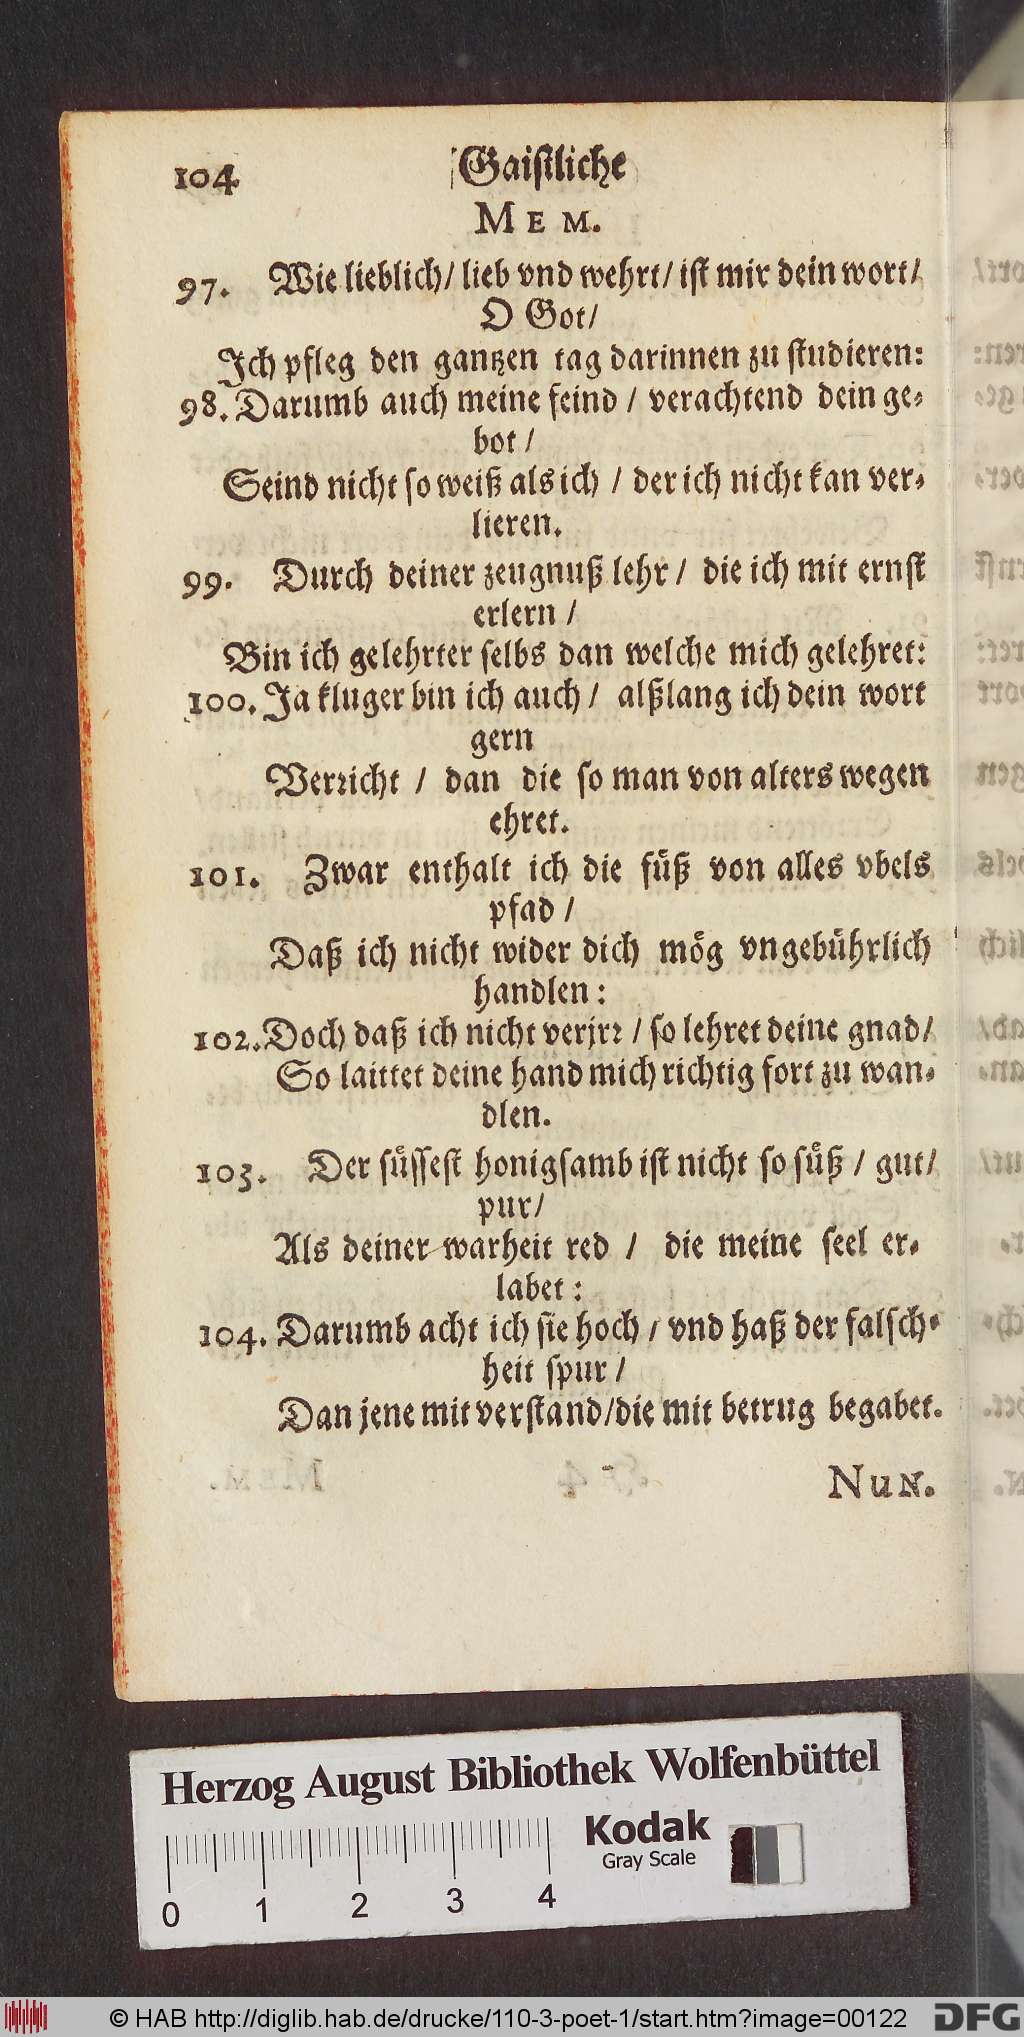 104 Gaistliche
MEM.
97. Wie lieblich/ lieb vnd wehrt/ ist mir dein wort/
O Got/
Ich pfleg den gantzen tag darinnen zu studieren:
98. Darumb auch meine feind / verachtend dein ge-
bot /
Seind nicht so weiß als ich / der ich nicht kan ver-
lieren.
99. Durch deiner zeugnuß lehr / die ich mit ernst
erlern /
Bin ich gelehrter selbs dan welche mich gelehret:
100. Ja kluger bin ich auch / alßlang ich dein wort
gern
Verricht / dan die so man von alters wegen
ehret.
101. Zwar enthalt ich die füß von alles vbels
pfad /
Daß ich nicht wider dich mög vngebührlich
handlen:
102. Doch daß ich nicht verjrr / so lehret deine gnad/
So laittet deine hand mich richtig fort zu wan-
dlen.
103. Der süssest honigsamb ist nicht so süß / gut/
pur/
Als deiner warheit red / die meine seel er-
labet:
104. Darumb acht ich sie hoch / vnd haß der falsch-
heit spur /
Dan jene mit verstand/die mit betrug begabet.
NUN.
Herzog August Bibliothek Wolfenbüttel
Kodak
Gray Scale
0 1 2 3 4
© HAB http://diglib.hab.de/drucke/110-3-poet-1/start.htm?image=00122 DFG